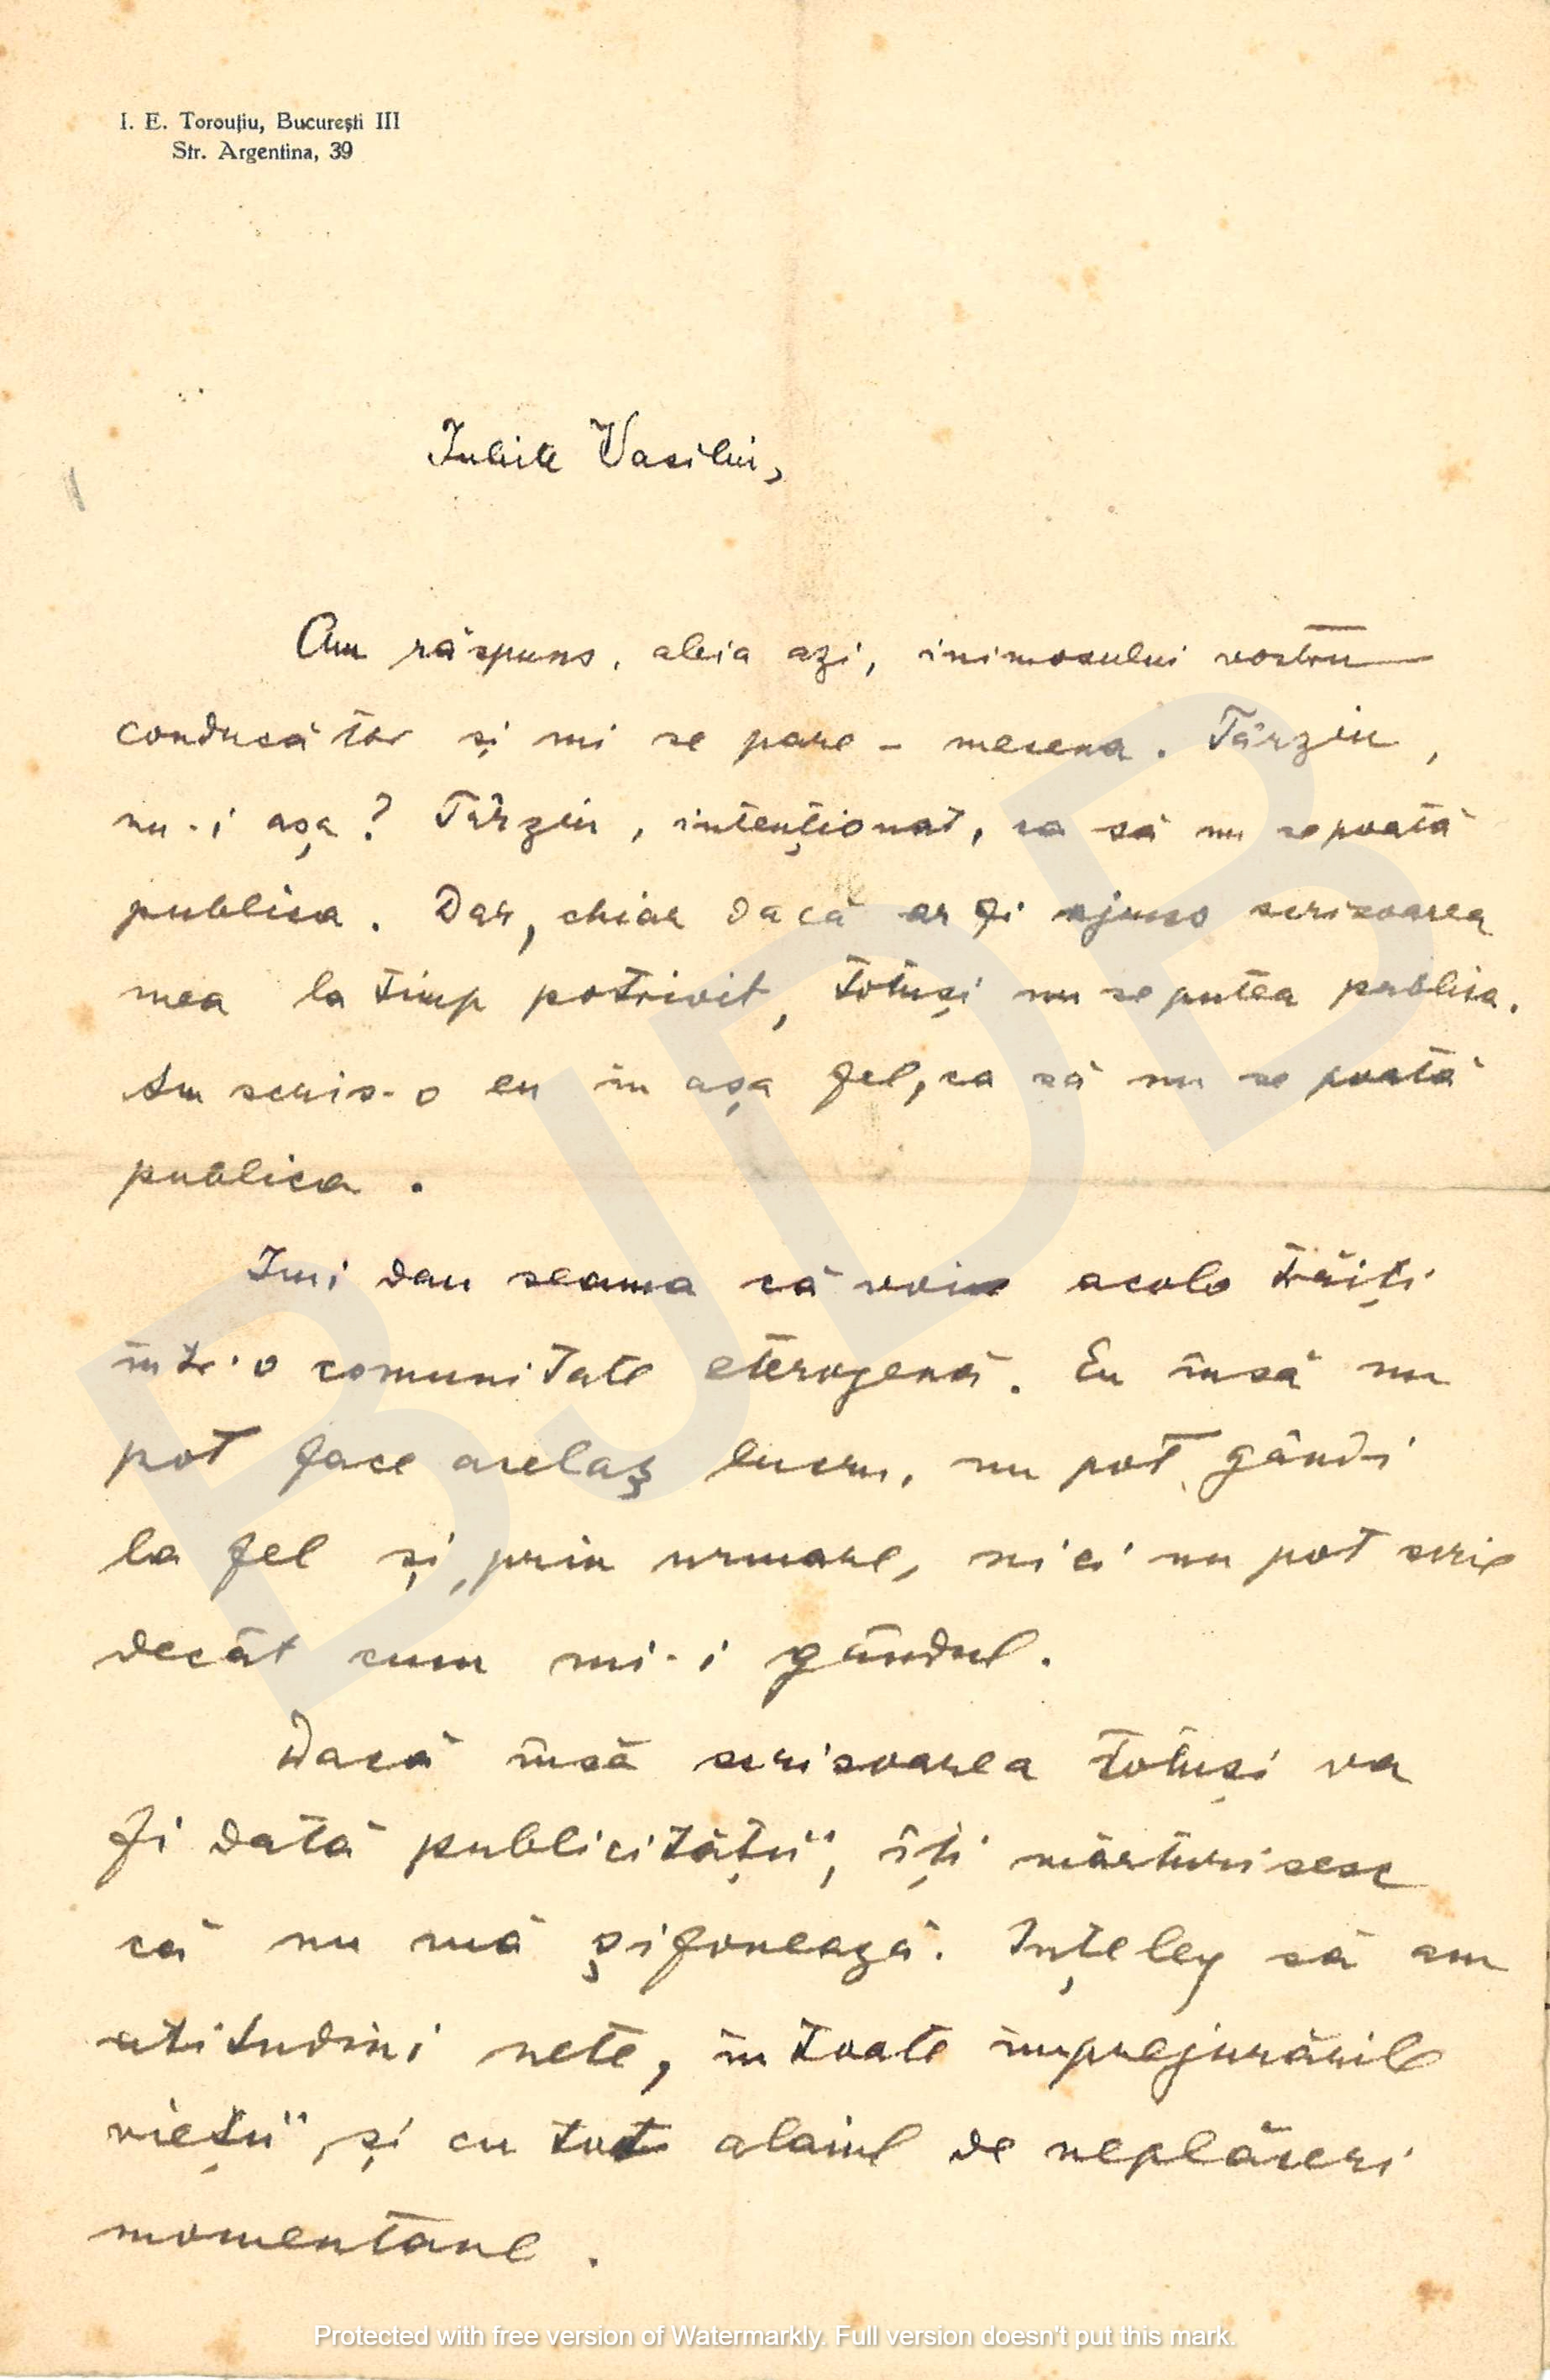 I. E. Torouțiu, București III
Str. Argentina, 39
Iubite Vasilui,
Am răspuns, abia azi, inimosului vostru
conducător și mi se pare – mecena. Târziu,
nu-i așa? Târziu, intenționat, ca să nu se poată
publica. Dar, chiar dacă ar fi ajuns scrisoarea
mea la timp potrivit, totuși nu se putea publica.
Am scris-o eu în așa fel, ca să nu se poată
publica.
Imi dau seama că voi acolo trăiți
într-o comunitate eterogenă. Eu însă nu
pot face acelaș lucru, nu pot gândi
la fel și, prin urmare, nici nu pot scrie
decât cum mi-i gândul.
Dacă însă scrisoarea totuși va
fi dată publicității, îți mărturisesc
că nu mă șifonează. Ințeleg să am
atitudini nete, în toate împrejurările
vieții, și cu tot alaiul de neplăceri
momentane.
BJDB
Protected with free version of Watermarkly. Full version doesn't put this mark.